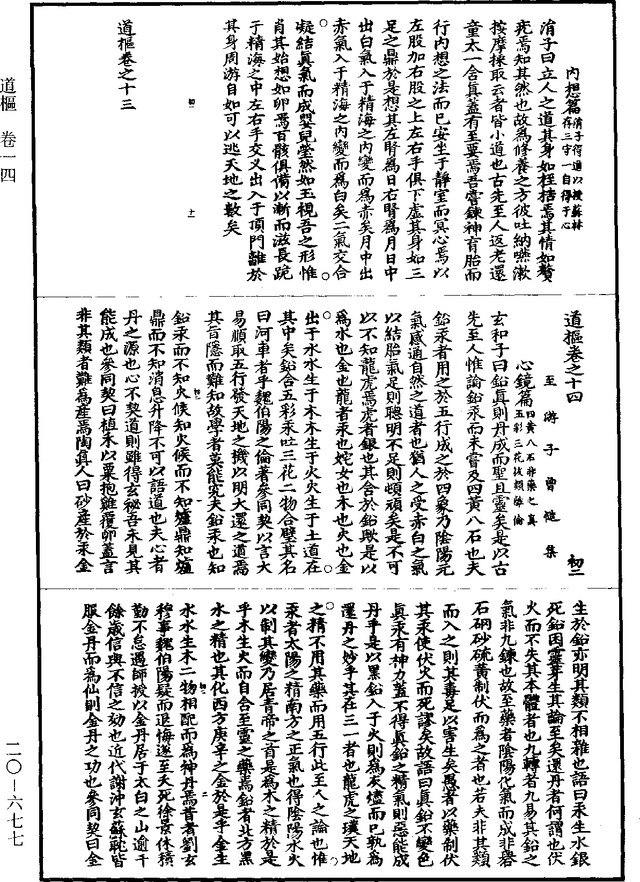 道樞 卷一四
二〇—六七七
內想篇 涓子得道以授蘇林存三守一自得于心
涓子曰立人之道其身如桎梏焉其情如贅
疣焉知其然也故爲修養之方彼吐納嚥漱
按摩採取云者皆小道也古先至人返老還
童太一含眞蓋有至要焉吾嘗鍊神育胎而
行內想之法而已安坐于靜室而冥心焉以
左股加右股之上左右手俱下虛其身如三
足之鼎於是想其左腎爲日右腎爲月日中
出白氣入于精海之內變而爲赤矣月中出
赤氣入于精海之內變而爲白矣二氣交合
凝結眞氣而成嬰兒瑩然如玉視吾之形惟
肖其始想如卵焉百骸俱備以漸而滋長跪
于精海之中左右手交叉出入于頂門離於
其身周游自如可以逃天地之數矣
道樞卷之十三
道樞卷之十四 初二
至游子曾慥集
心鏡篇 四黃八石非藥之眞五彩三花拔類離倫
玄和子曰鉛眞則丹成而聖且靈矣是以古
先至人惟論鉛汞而未嘗及四黃八石也夫
鉛汞者用之於五行成之於四象乃陰陽元
氣感通自然之道者也猶人之受赤白之氣
以結胎氣足則聰明不足則頓頑矣是不可
以不知龍虎焉虎者銀也其含於鉛歟是以
爲水也金也龍者汞也姹女也木也火也金
出于水水生于木木生于火火生于土道在
其中矣鉛合五彩汞吐三花二物合壁其名
曰河車者乎魏伯陽之倫著參同契以言大
易順取五行發天地之機以明大還之道焉
其旨隱而難知故學者莫能究夫鉛汞也知
鉛汞而不知火候知火候而不知爐鼎知爐
鼎而不知消息升降不可以語道也夫心者
丹之源也心不契道則雖得玄秘吾未見其
能成也參同契曰植禾以粟抱雞覆卵蓋言
非其類者難爲產焉陶眞人曰砂產於汞金
生於鉛亦明其類不相雜也語曰汞生水銀
死鉛因靈芽生其論至矣還丹者何謂也伏
火而不失其本體者也九轉者九易其鉛之
氣非九鍊也故至藥者陰陽化氣而成非礜
石硇砂硫黃制伏而爲之者也若夫非其類
而入之則其毒足以害生矣愚者以藥制伏
其汞使伏火而死謬矣故語曰眞鉛不變色
眞汞有神力蓋不得眞鉛之精氣則惡能成
丹乎是以黑鉛入于火則爲灰燼而已孰爲
還丹之妙乎其在三一者也龍虎之璞天地
之精不用其藥而用五行此至人之論也惟
汞者太陽之精南方之正氣也得陰陽水火
以制其變乃居青帝之首是爲木之精於是
乎木生火而自合至靈之藥焉鉛者北方黑
水之精也其化西方庚辛之金於是乎金生
水水生木二物相配而爲神丹焉昔者劉玄
穆事魏伯陽疑而退悔遂至夭死徐景休積
勤不怠遇師授以金丹居于太白之山逾千
餘歲信與不信之効也近代謝沖玄蘇耽皆
服金丹而爲仙則金丹之功也參同契曰金